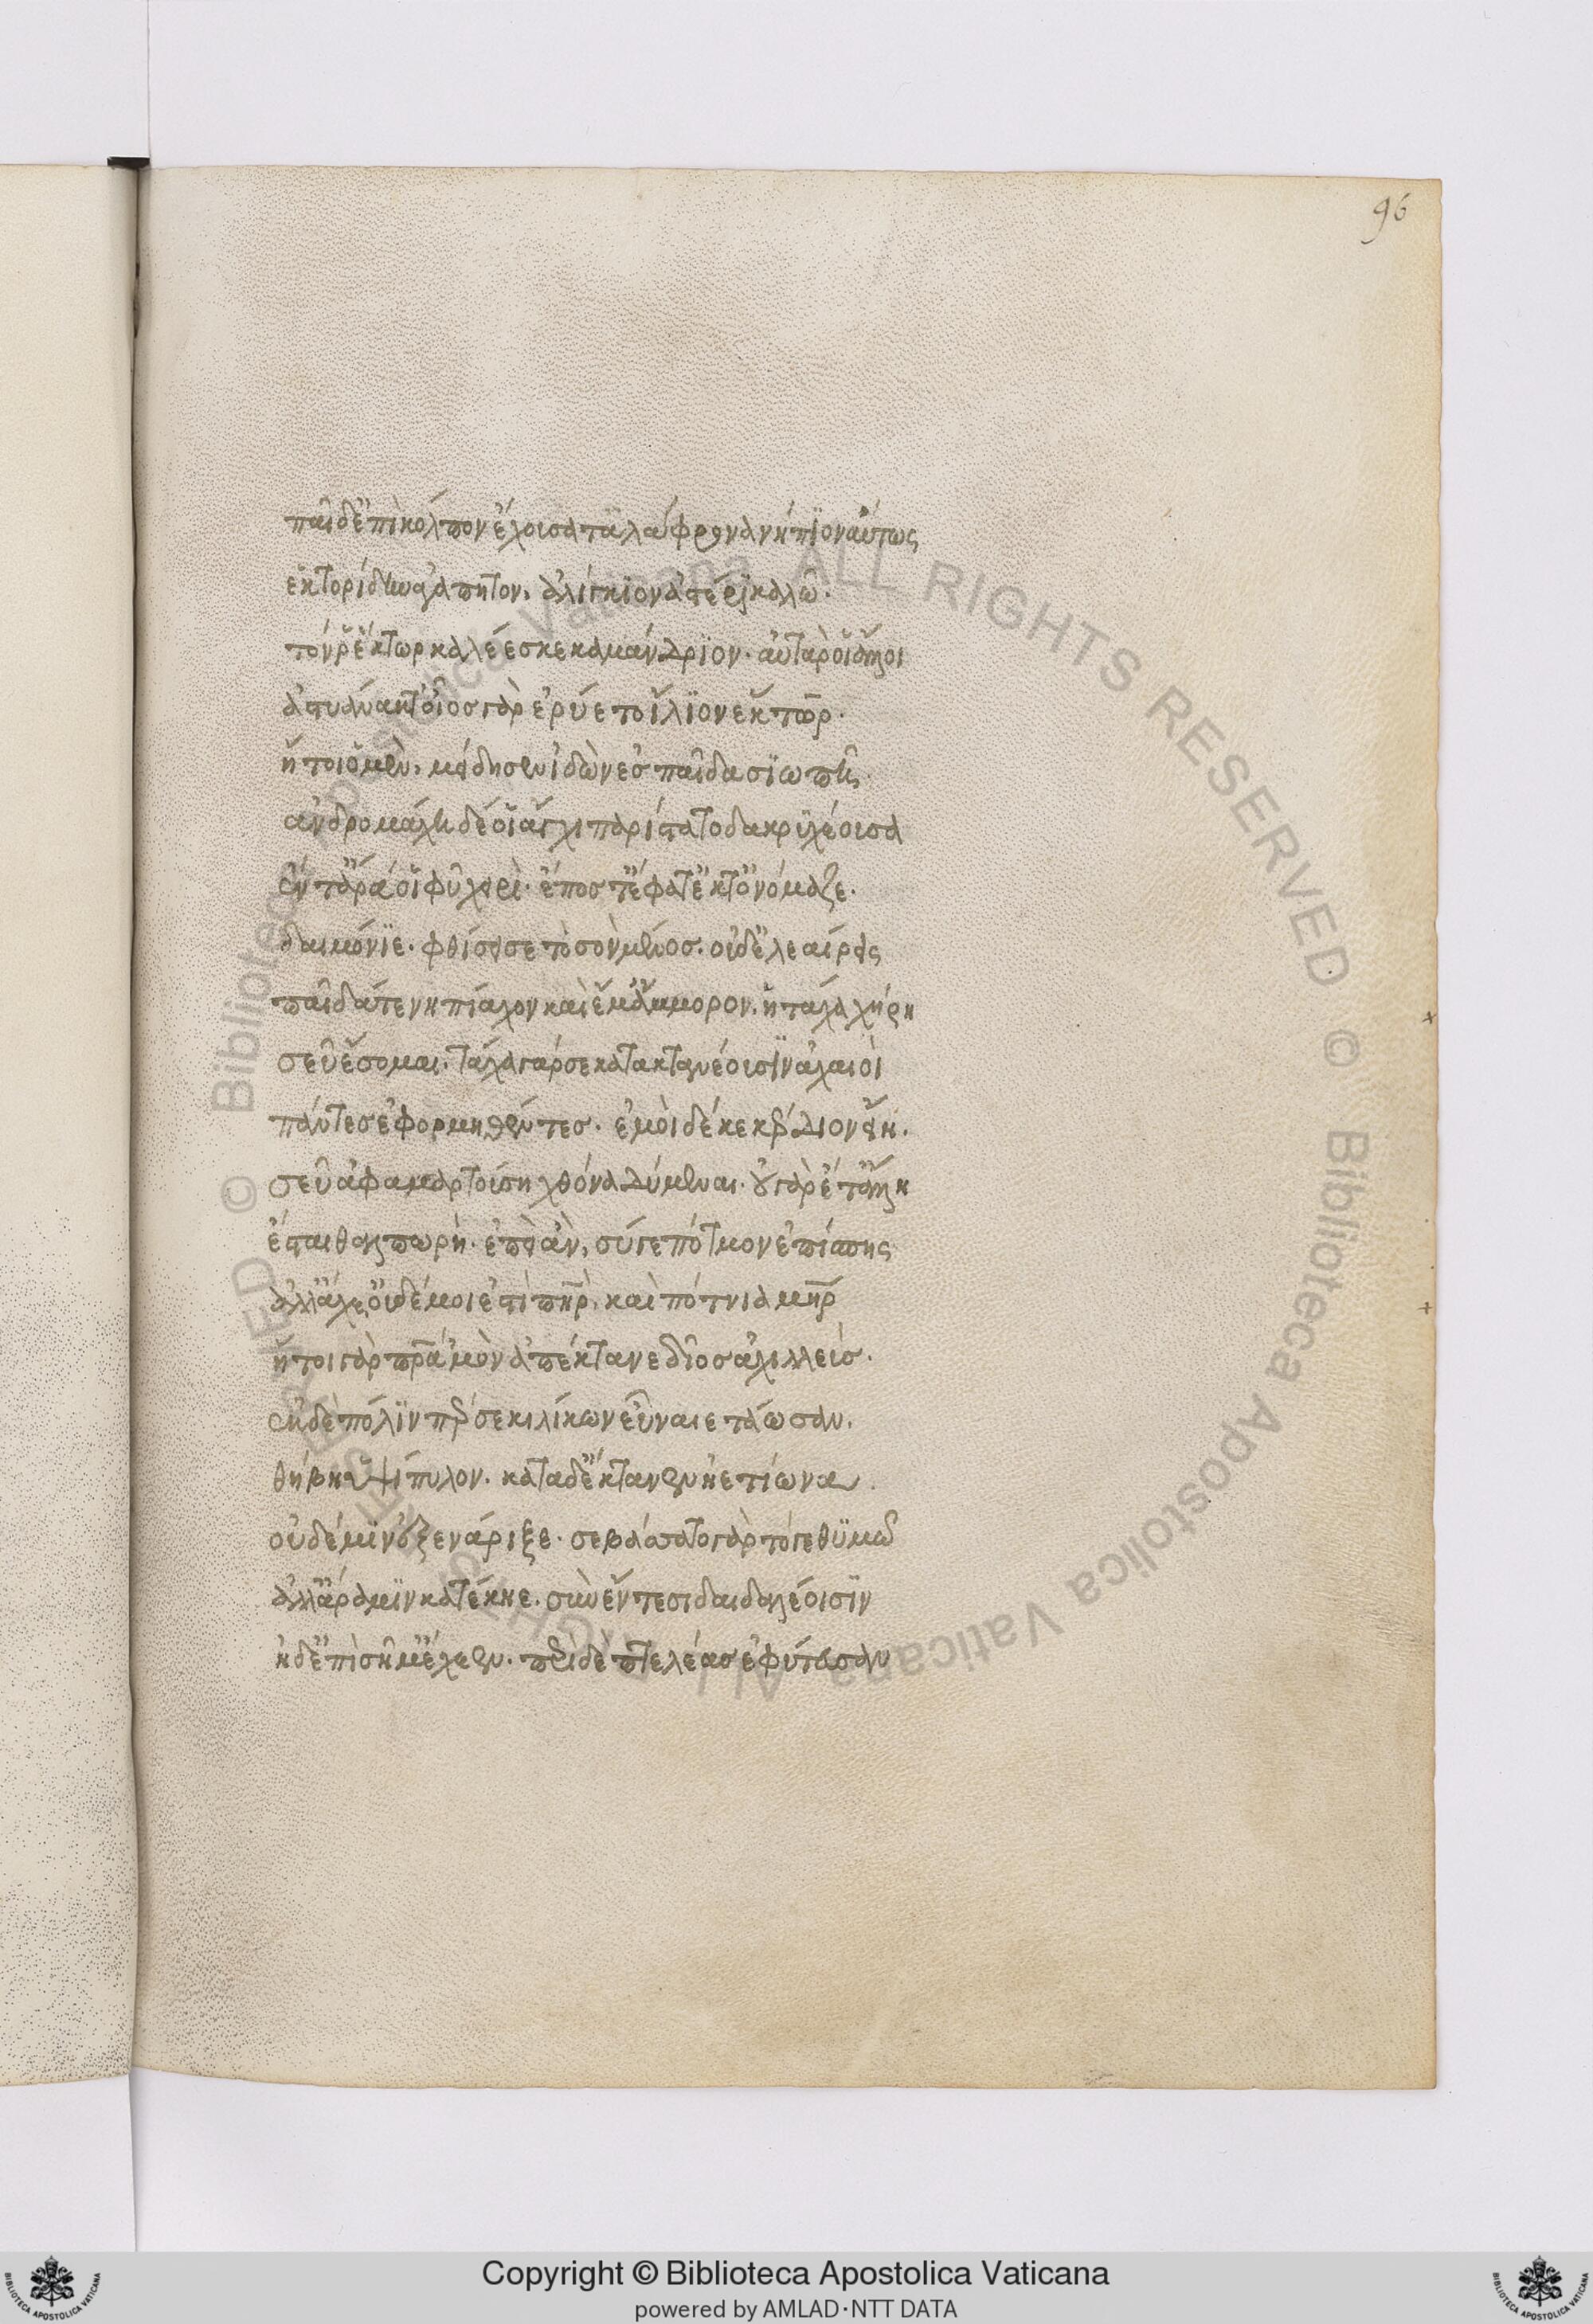 96
παῖδ' ἐπὶ κόλπον ἔχουσ' ἀταλάφρονα νήπϊον αὔτως
ἑκτορίδην ἀγαπητὸν, ἀλίγκϊον ἀστέρϊ καλῶ.
τόν ῥ' ἕκτωρ καλέεσκε καμάνδρϊον. αὐτὰρ οἵ ἄλλοι
ἀστυάνακτ'. οἶος γὰρ ἐρύετο ἴλϊον ἕκτωρ.
ἤτοι ὃ μὲν, μείδησεν ἰδὼν ἐσ παῖδα σϊωπῆ.
ἀνδρομάχη δέ οἱ ἄγχι παρίστατο δακρυχέουσα
ἔν τ' ἄρα οἱ φῦ χειρὶ. ἔπος τ' ἔφατ' ἔκ τ' ὀνόμαζε.
δαιμόνϊε. φθίσει σε τὸ σὸν μένος. οὐδ' ἐλεαίρεις
παῖδά τε νηπίαχον καὶ ἔμ' ἄμμορον. ἣ τάχα χήρη
σεῦ ἔσομαι. τάχα γάρ σε κατακτανέουσϊν ἀχαιοὶ
πάντεσ ἐφορμηθέντες. ἐμοὶ δέ κε κέρδιον εἴη.
σεῦ ἀφαμαρτούση χθόνα δύμεναι. οὐ γὰρ ἔτ' ἄλλη
ἔσται θαλπωρή. ἐπεὶ ἂν, σύ γε πότμον ἐπίσπης
ἀλλ' ἄχε'. οὐδέ μοι ἐστὶ πατὴρ. καὶ πότνια μήτηρ
ἤτοι γὰρ πατέρ' ἁμὸν ἀπέκτανε δῖος ἀχιλλεὺσ.
ἐκ δὲ πόλϊν πέρσε κιλίκων εὖ ναιετάωσαν.
θήβην ὑψίπυλον. κατὰ δ' ἔκτανεν ἠετίωνα.
οὐδέ μϊν ἐξενάριξε. σεβάσσατο γὰρ τό γε θϋμῶ
ἀλλ' ἄρα μϊν κατέκηε. σὺν ἔντεσι δαιδαλέοισϊν
ἠδ' ἐπὶ σῆμ' ἔχεεν. περὶ δὲ πτελέασ ἐφύτευσαν
Copyright © Biblioteca Apostolica Vaticana
powered by AMLAD·NTT DATA